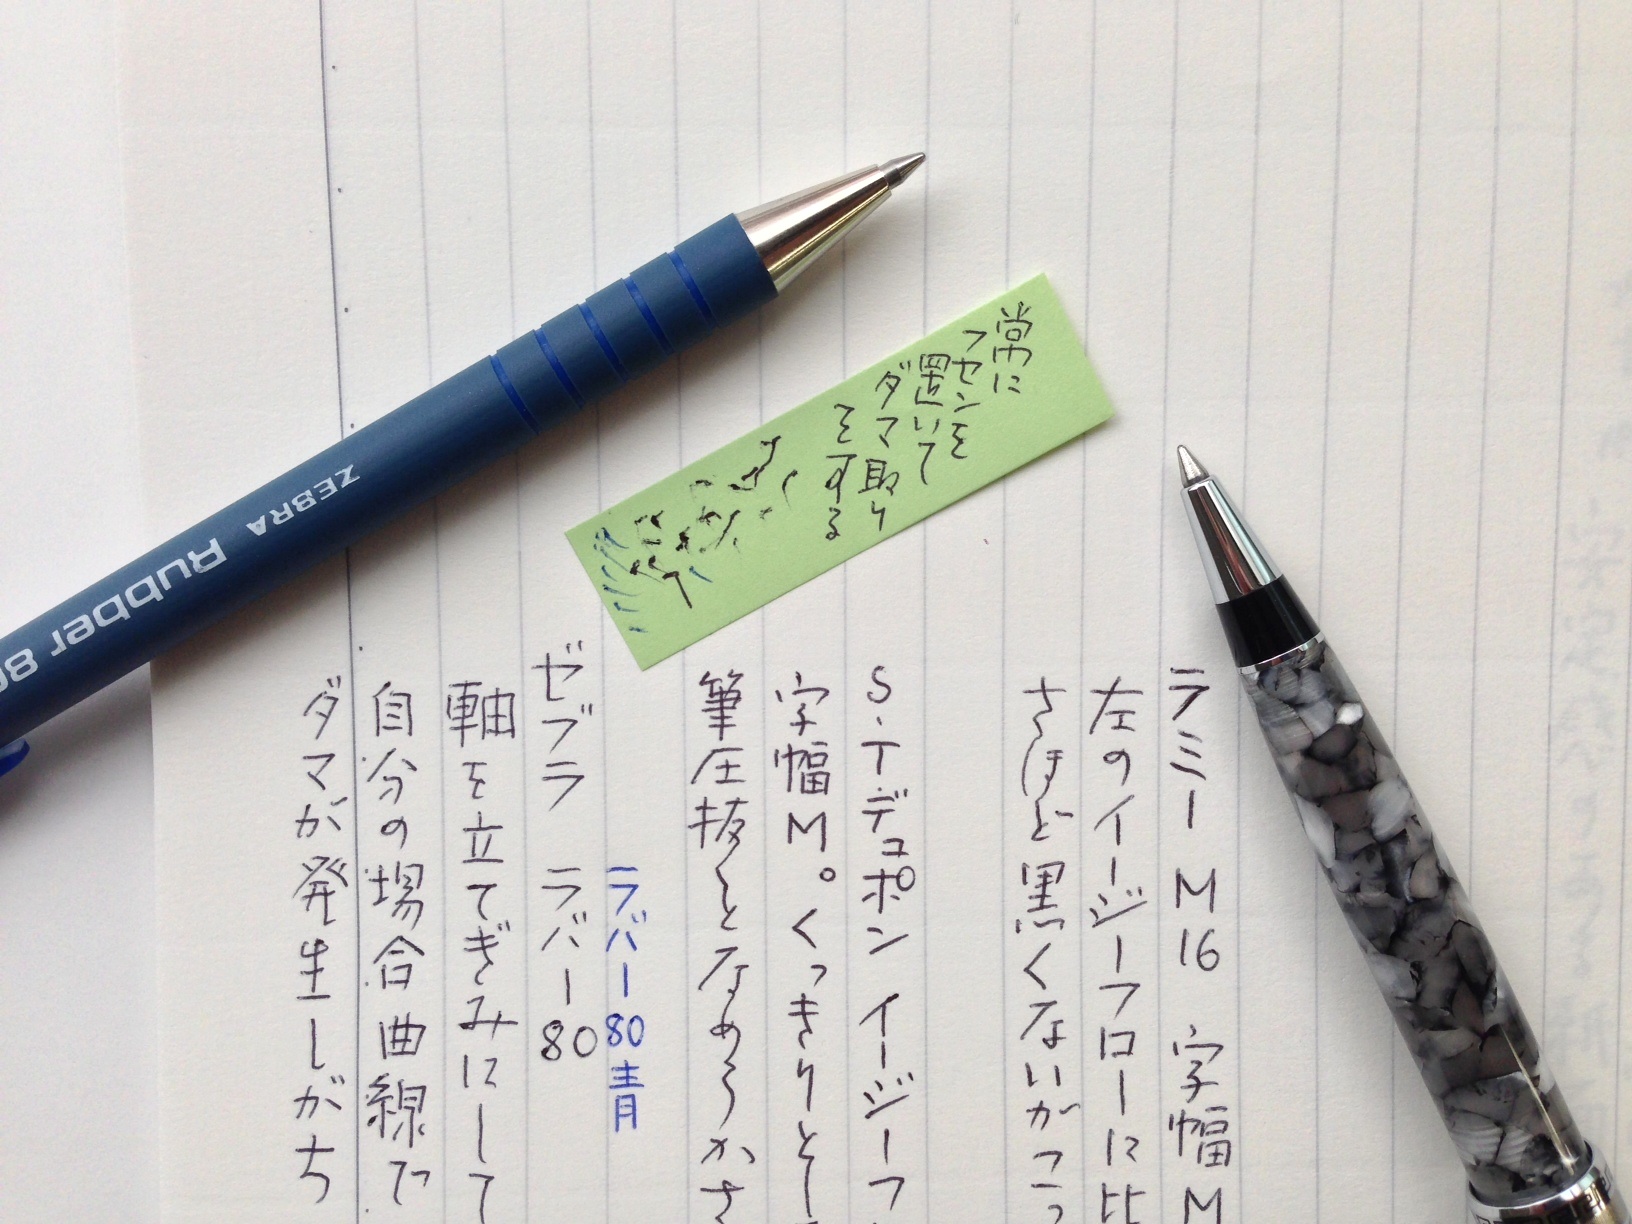 常に
フセンを
置いて
ダマ取り
をする
ZEBRA Rubber 80
ラミー M16 字幅M
左のイージーフローに比
さほど黒くないがこっ
S.Tデュポン イージーフ
字幅M。くっきりとし
筆圧抜くとなめらかさ
ラバー80青
ゼブラ ラバー80
軸を立てぎみにして
自分の場合曲線で
ダマが発生しがち